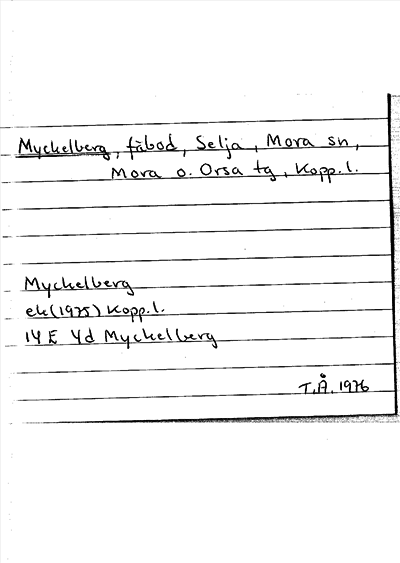 Myckelberg, fäbod, Selja, Mora sn,
Mora o. Orsa tg, Kopp. l.
Myckelberg
ek (1975) Kopp. l.
14 E 4d Myckelberg
T.Å. 1976